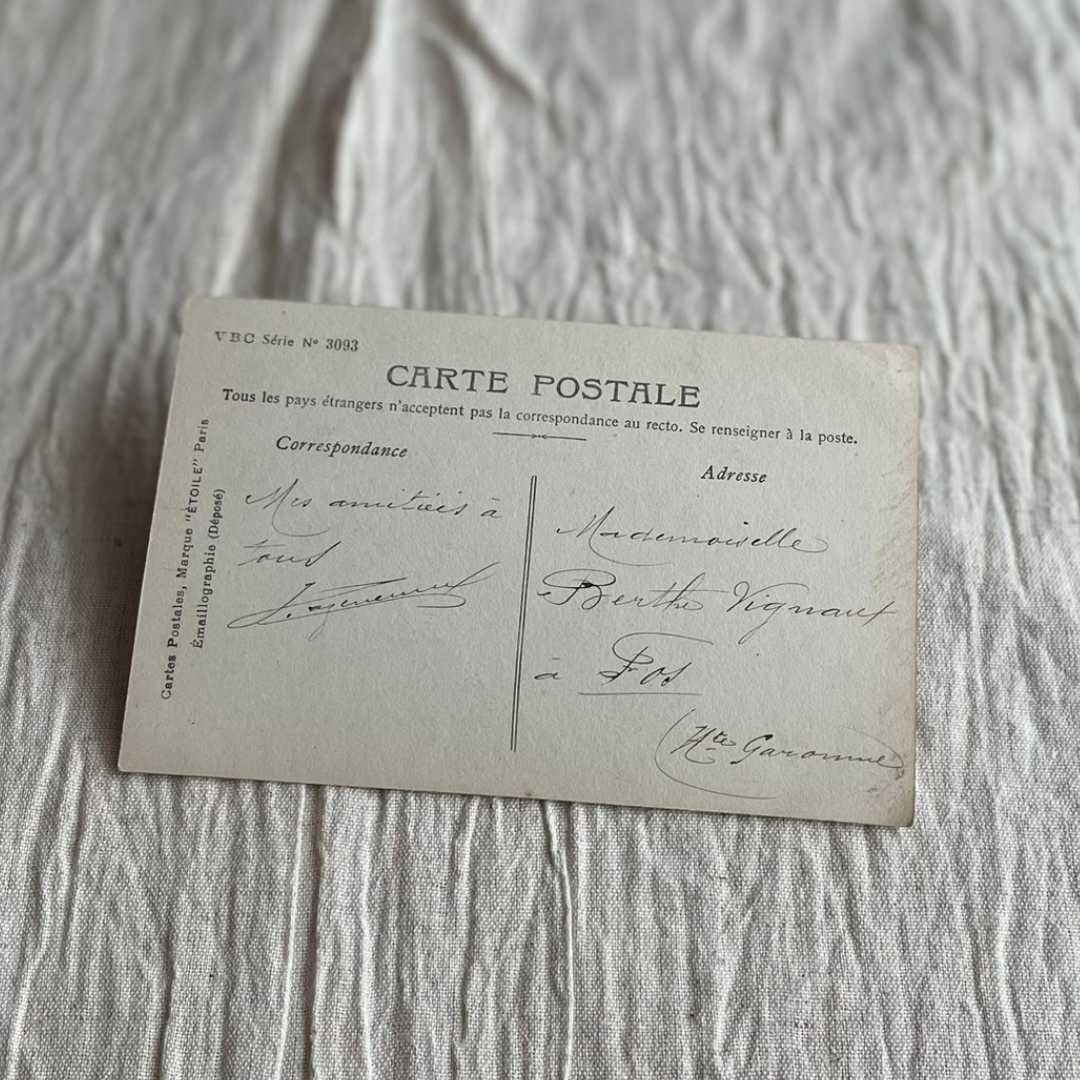 VBC Série Nº 3093
CARTE POSTALE
Tous les pays étrangers n'acceptent pas la correspondance au recto. Se renseigner à la poste.
Cartes Postales, Marque "ÉTOILE" Paris
Émaillographie (Déposé)
Correspondance
Mes amitiés à
tous
Adresse
Mademoiselle
Berthe Vignaux
à Fos
(Hte Garonne)